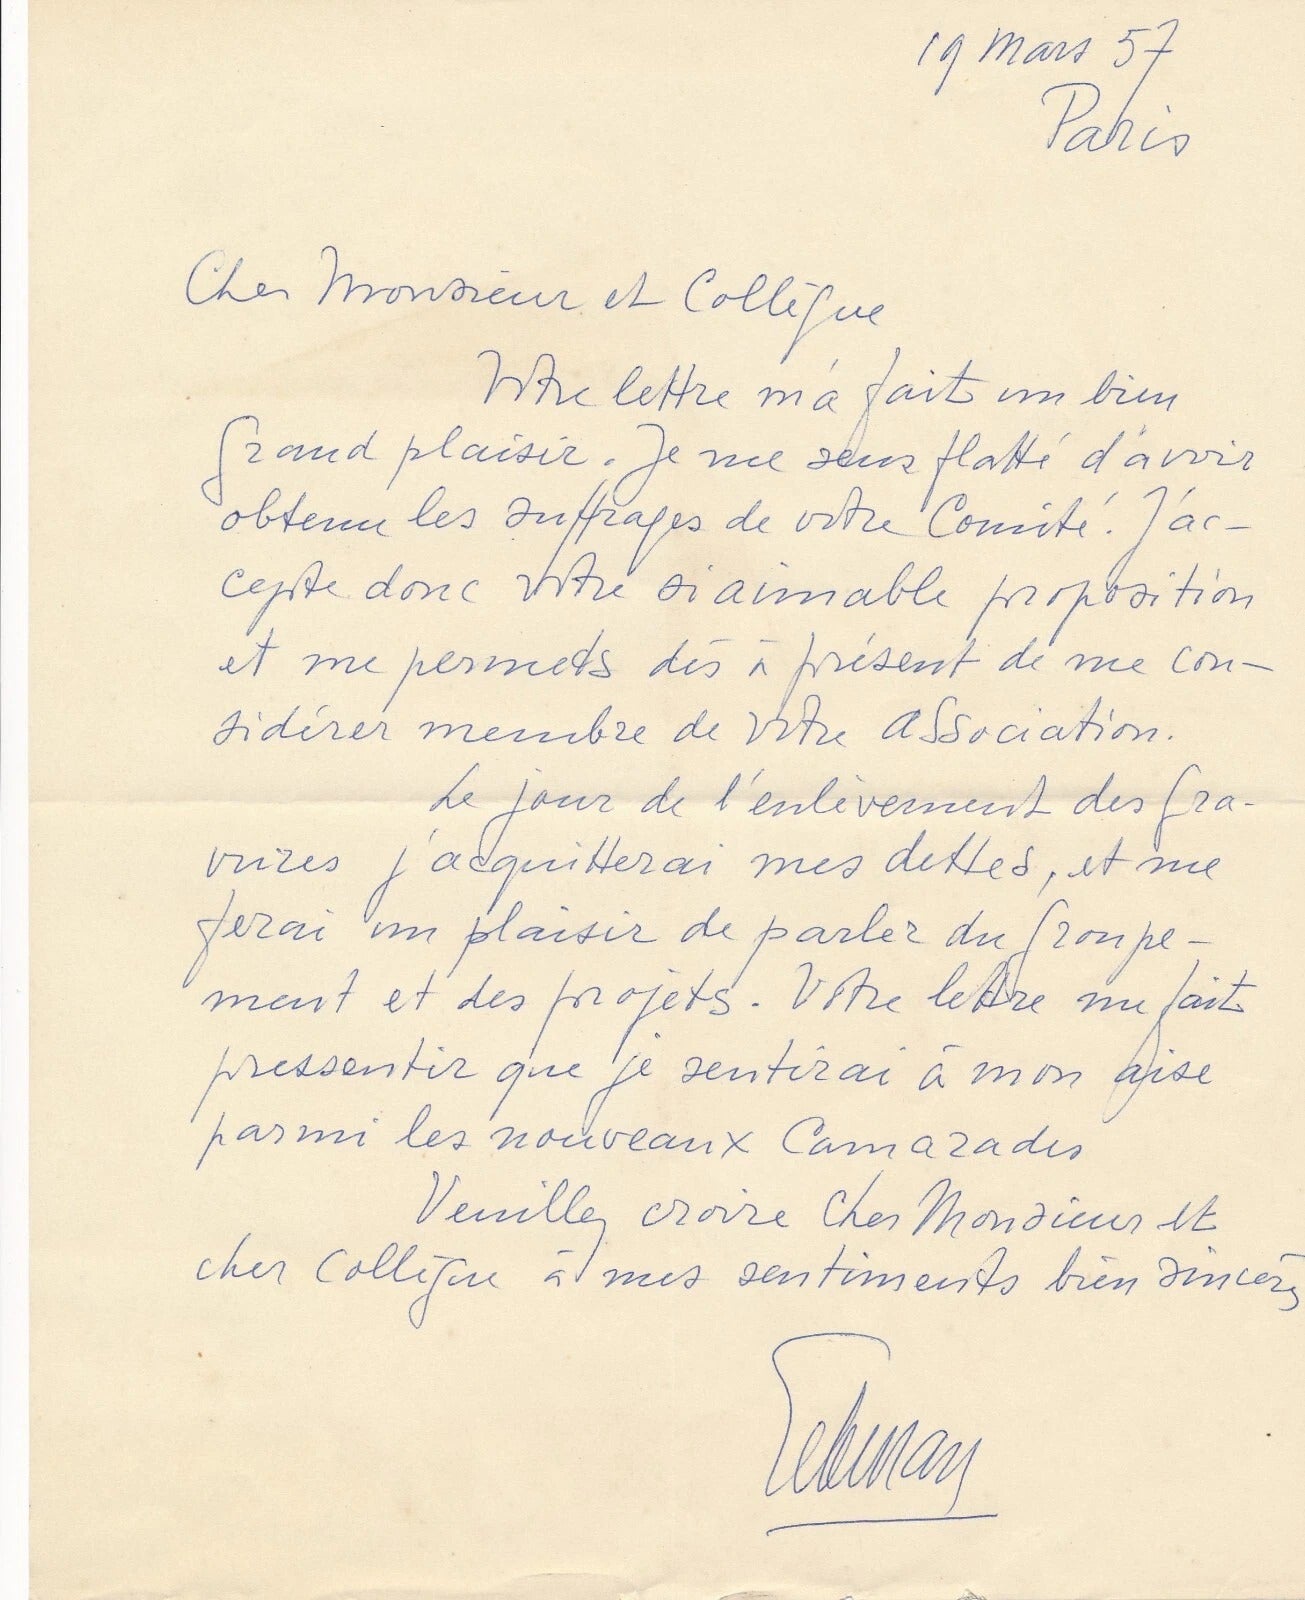 19 Mars 57
Paris
Cher Monsieur et Collègue
Votre lettre m'a fait un bien
grand plaisir. Je me sens flatté d'avoir
obtenu les suffrages de votre Comité. J'ac-
cepte donc votre si aimable proposition
et me permets dès à présent de me con-
sidérer membre de votre Association.
Le jour de l'enlèvement des gra-
vures j'acquitterai mes dettes, et me
ferai un plaisir de parler du groupe-
ment et des projets. Votre lettre me fait
pressentir que je sentirai à mon aise
parmi les nouveaux Camarades
Veuillez croire Cher Monsieur et
cher Collègue à mes sentiments bien sincères